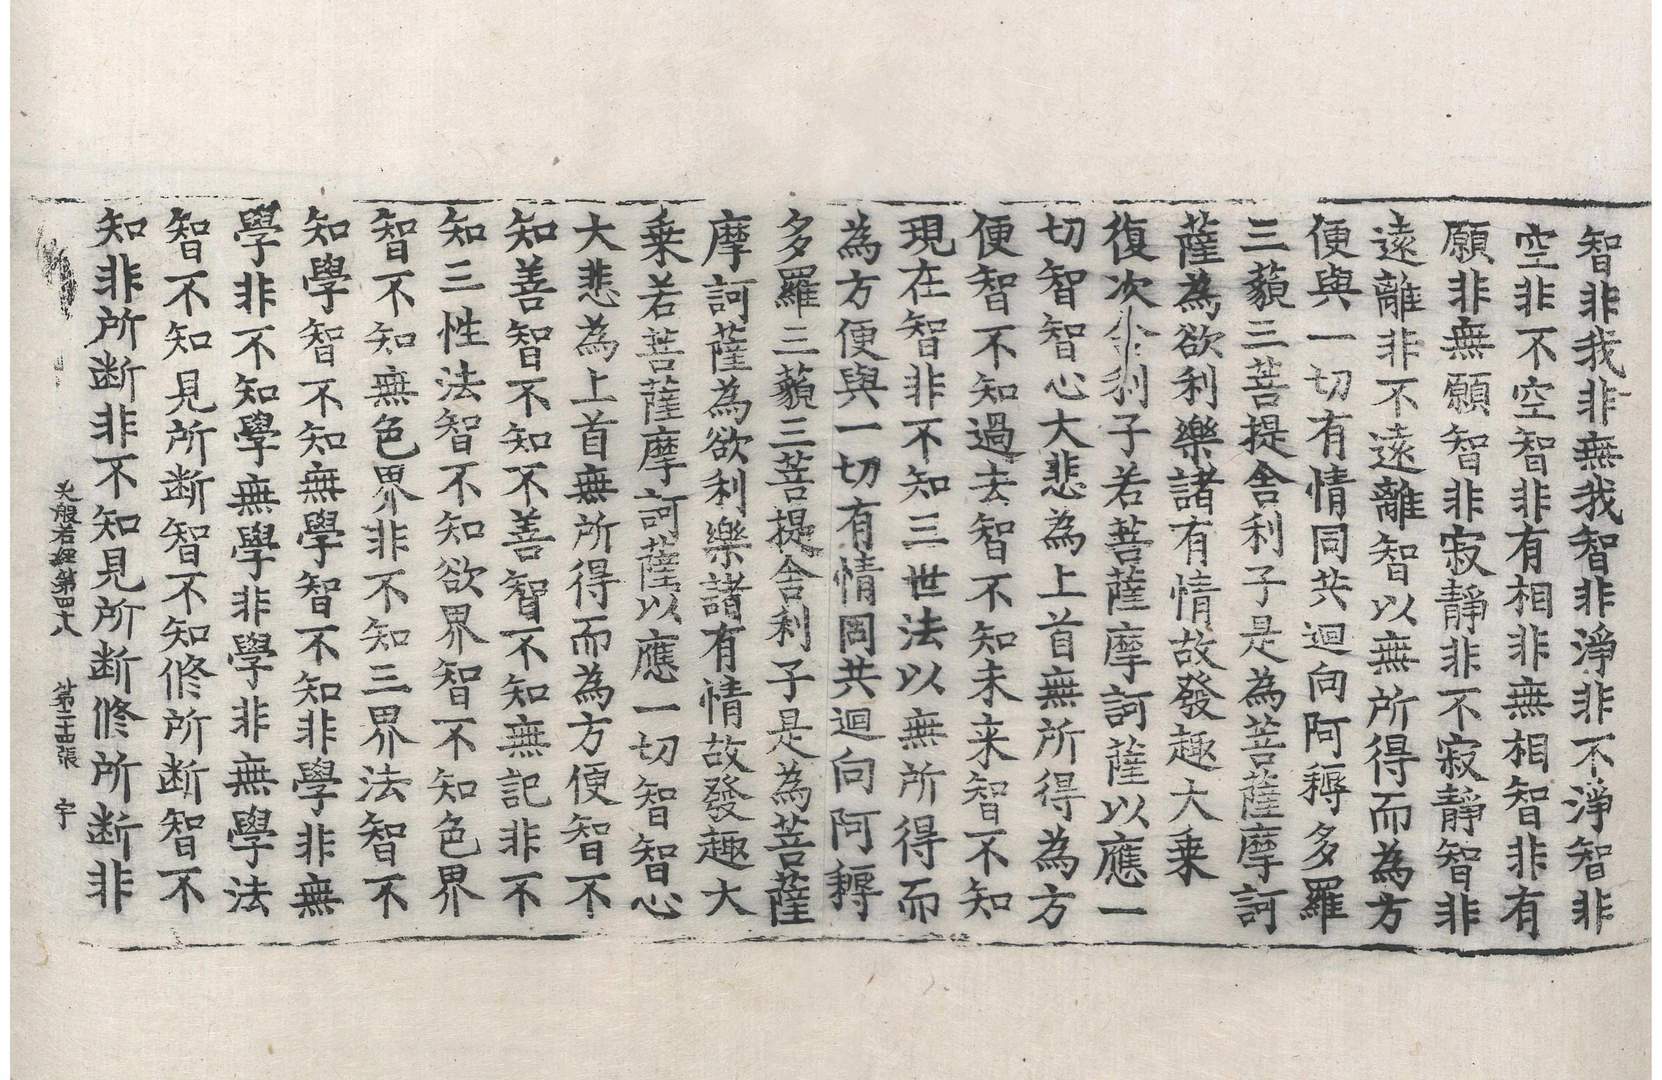 智非我非無我智非淨非不淨智非
空非不空智非有相非無相智非有
願非無願智非寂靜非不寂靜智非
遠離非不遠離智以無所得而為方
便與一切有情同共迴向阿耨多羅
三藐三菩提舍利子是為菩薩摩訶
薩為欲利樂諸有情故發趣大乗
復次舍利子若菩薩摩訶薩以應一
切智智心大悲為上首無所得為方
便智不知過去智不知未来智不知
現在智非不知三世法以無所得而
為方便與一切有情同共迴向阿耨
多羅三藐三菩提舍利子是為菩薩
摩訶薩為欲利樂諸有情故發趣大
乗若菩薩摩訶薩以應一切智智心
大悲為上首無所得而為方便智不
知善智不知不善智不知無記非不
知三性法智不知欲界智不知色界
智不知無色界非不知三界法智不
知學智不知無學智不知非學非無
學非不知學無學非學非無學法
智不知見所断智不知修所断智不
知非所断非不知見所断修所断非
大般若經第四十八 第二十四張 宇